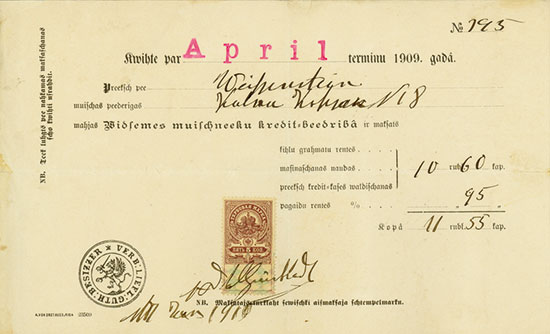 № 195
Kwihte par April terminu 1909. gadá.
Preeksch pee Weissenstein
muischas peederigas Kalna № 8
mahjas Widsemes muischneeku kredit-beedribâ ir maksats
kihlu grahmatu rentes
masinaschanas naudas 10 rubl. 60 kap.
preeksch kredit-kases waldischanas
pagaidu rentes % 95
Kopâ 11 rubl. 55 kap.
NB. Teek luhgts pee nahkamas maksaschanas
scho kwihti usrahdit.
ПЯТЬ 5 КОП.
VERB: LIVL: GUTH: BESIZZER
1910
NB. Maksatajs turklaht sewischki aismaksaja schtempelmarku.